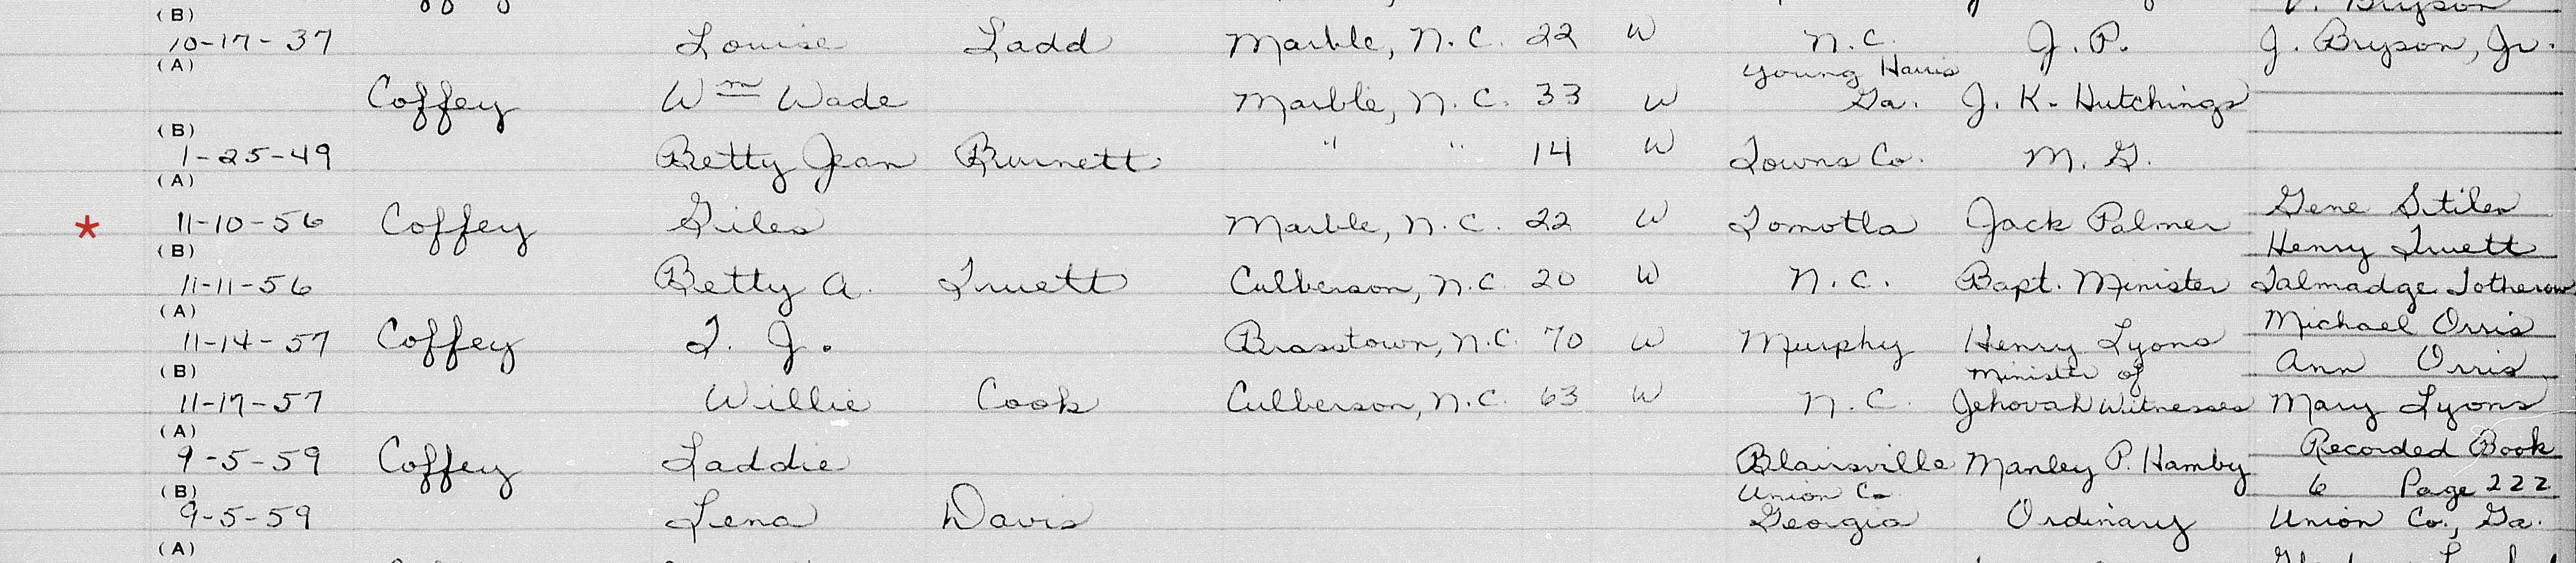 (B) V. Bryson
10-17-37 Louise Ladd Marble, N.C. 22 W N.C. J.P. J. Bryson, Jr.
(A) Young Harris
Coffey Wm Wade Marble, N.C. 33 W Ga. J. K. Hutchings
(B)
1-25-49 Betty Jean Burnett " " 14 W Towns Co. M.G.
(A)
Gene Stiles
* 11-10-56 Coffey Giles Marble, N.C. 22 W Tomotla Jack Palmer
(B) Henry Truett
11-11-56 Betty A. Truett Culberson, N.C. 20 W N.C. Bapt. Minister Talmadge
(A) Michael Orris
11-14-57 Coffey T. J. Brasstown, N.C. 70 W Murphy Henry Lyons
(B) Minister of Ann Orris
11-17-57 Willie Cook Culberson, N.C. 63 W N.C. Jehovah Witnesses Mary Lyons
(A) Recorded Book
9-5-59 Coffey Laddie Blairsville Manley P. Hamby
(B) Union Co. 6 Page 222
9-5-59 Lena Davis Georgia Ordinary Union Co., Ga.
(A)